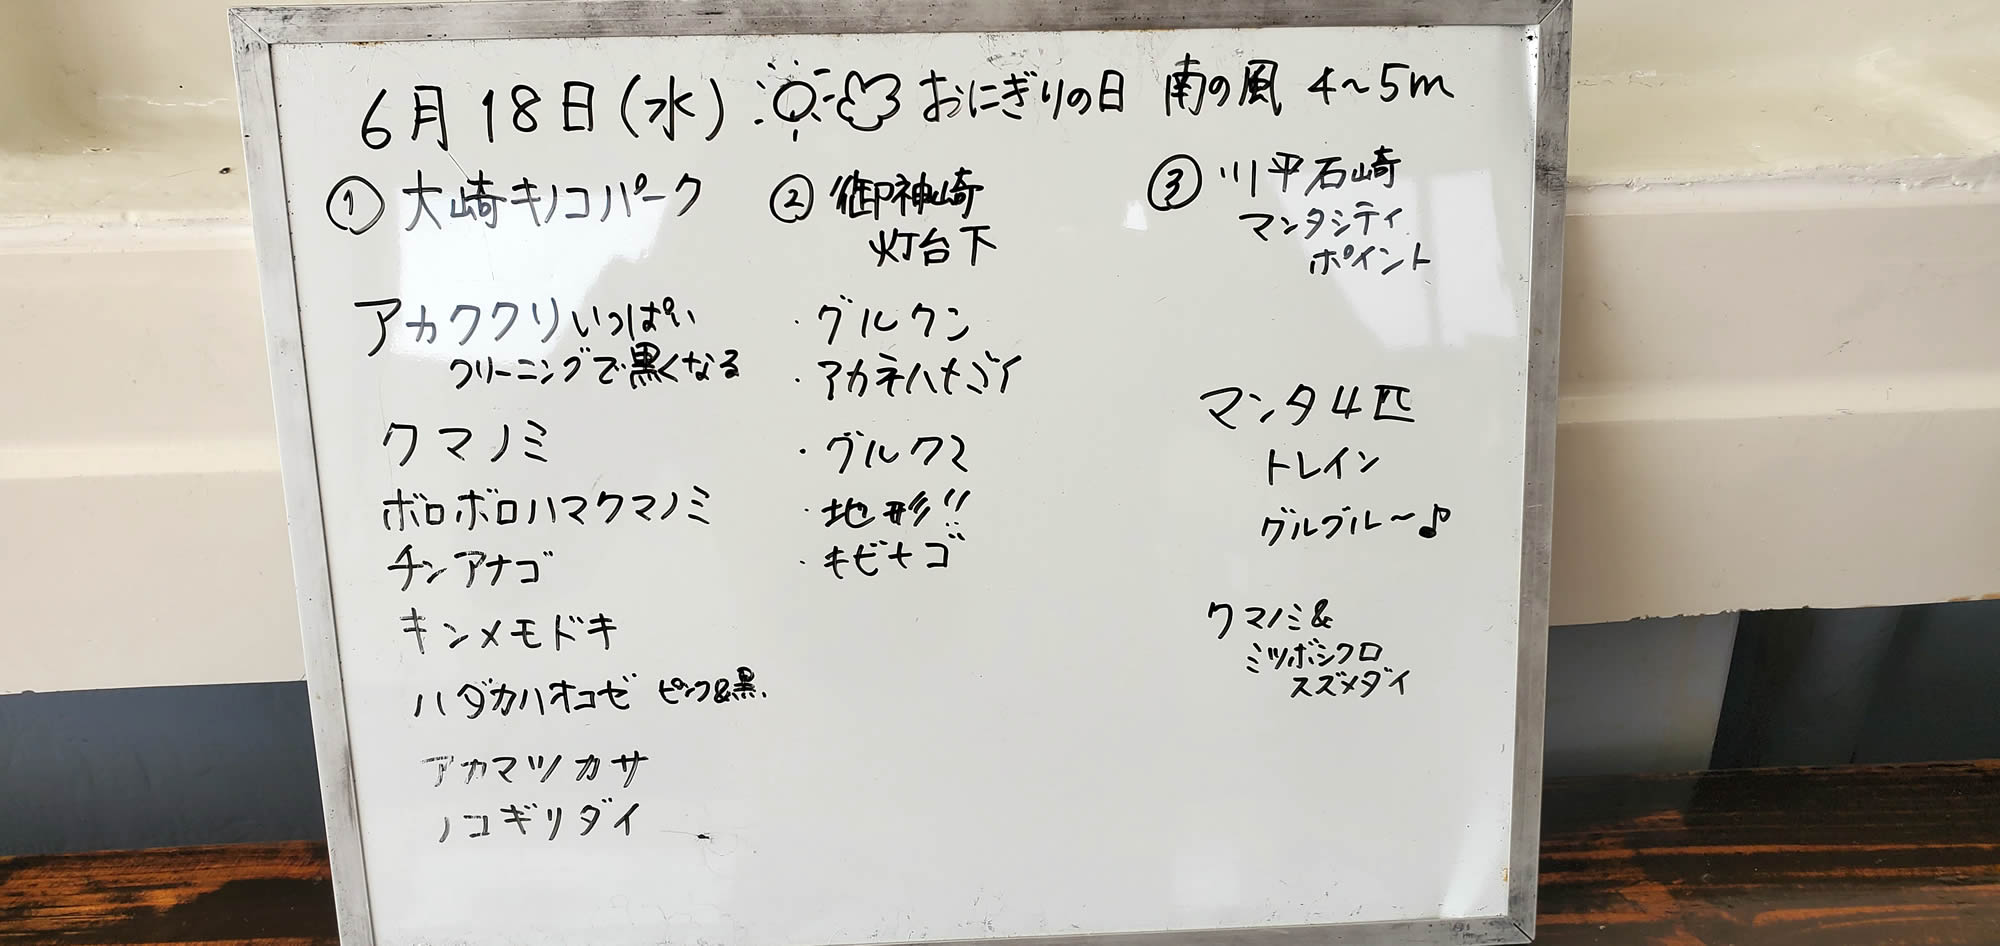 6月18日(水) おにぎりの日 南の風 4~5m
① 大崎キノコパーク
アカククリいっぱい
クリーニングで黒くなる
クマノミ
ボロボロハマクマノミ
チンアナゴ
キンメモドキ
ハダカハオコゼ ピンク&黒.
アカマツカサ
ノコギリダイ
② 御神崎
灯台下
・グルクン
・アカネハナゴイ
・グルクマ
・地形!!
・キビナゴ
③ 川平石崎
マンタシティ
ポイント
マンタ4匹
トレイン
グルグル〜♪
クマノミ&
ミツボシクロ
スズメダイ